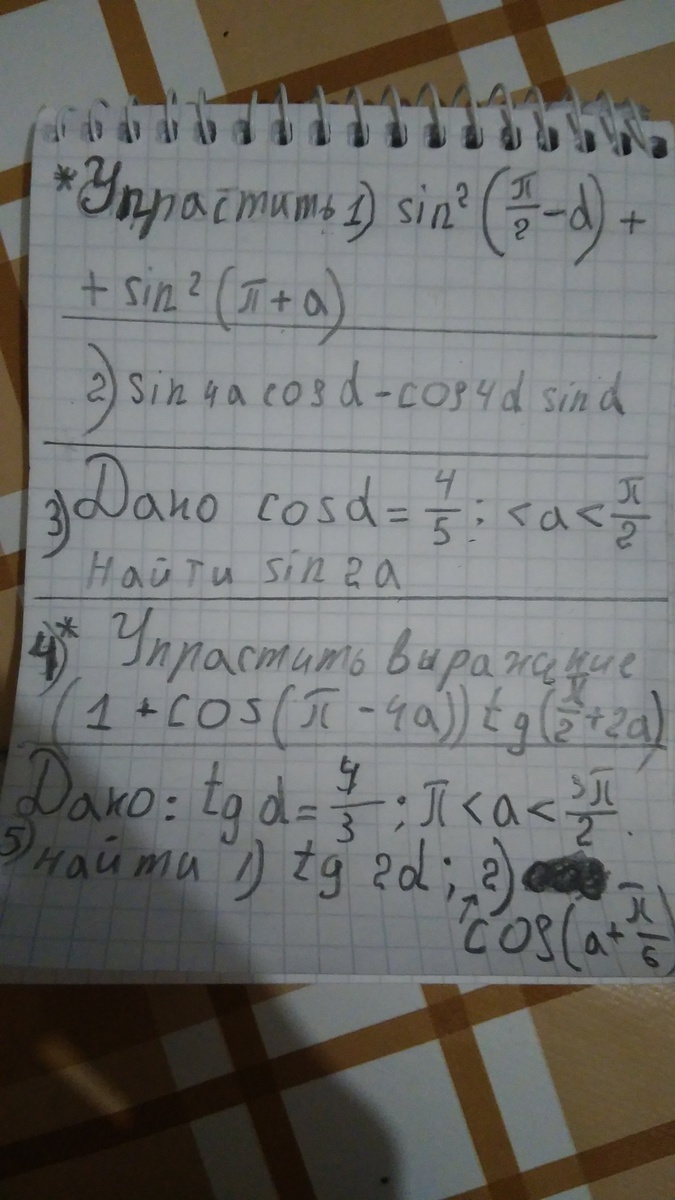 *Упрастить 1) sin² (π/2 - d) +
+ sin² (π + a)
2) sin 4a cos d - cos 4d sin d
3) Дано cos d = 4/5 ; < a < π/2
найти sin 2a
4)* Упрастить выражение
(1 + cos(π - 4a)) tg(π/2 + 2a)
Дано: tg d = 4/3 ; π < a < 3π/2 .
5) найти 1) tg 2d ; 2)
cos(a + π/6